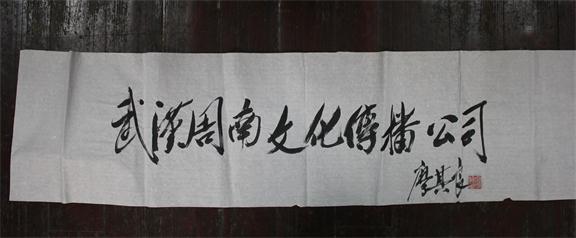 武漢周南文化傳播公司
廖其良